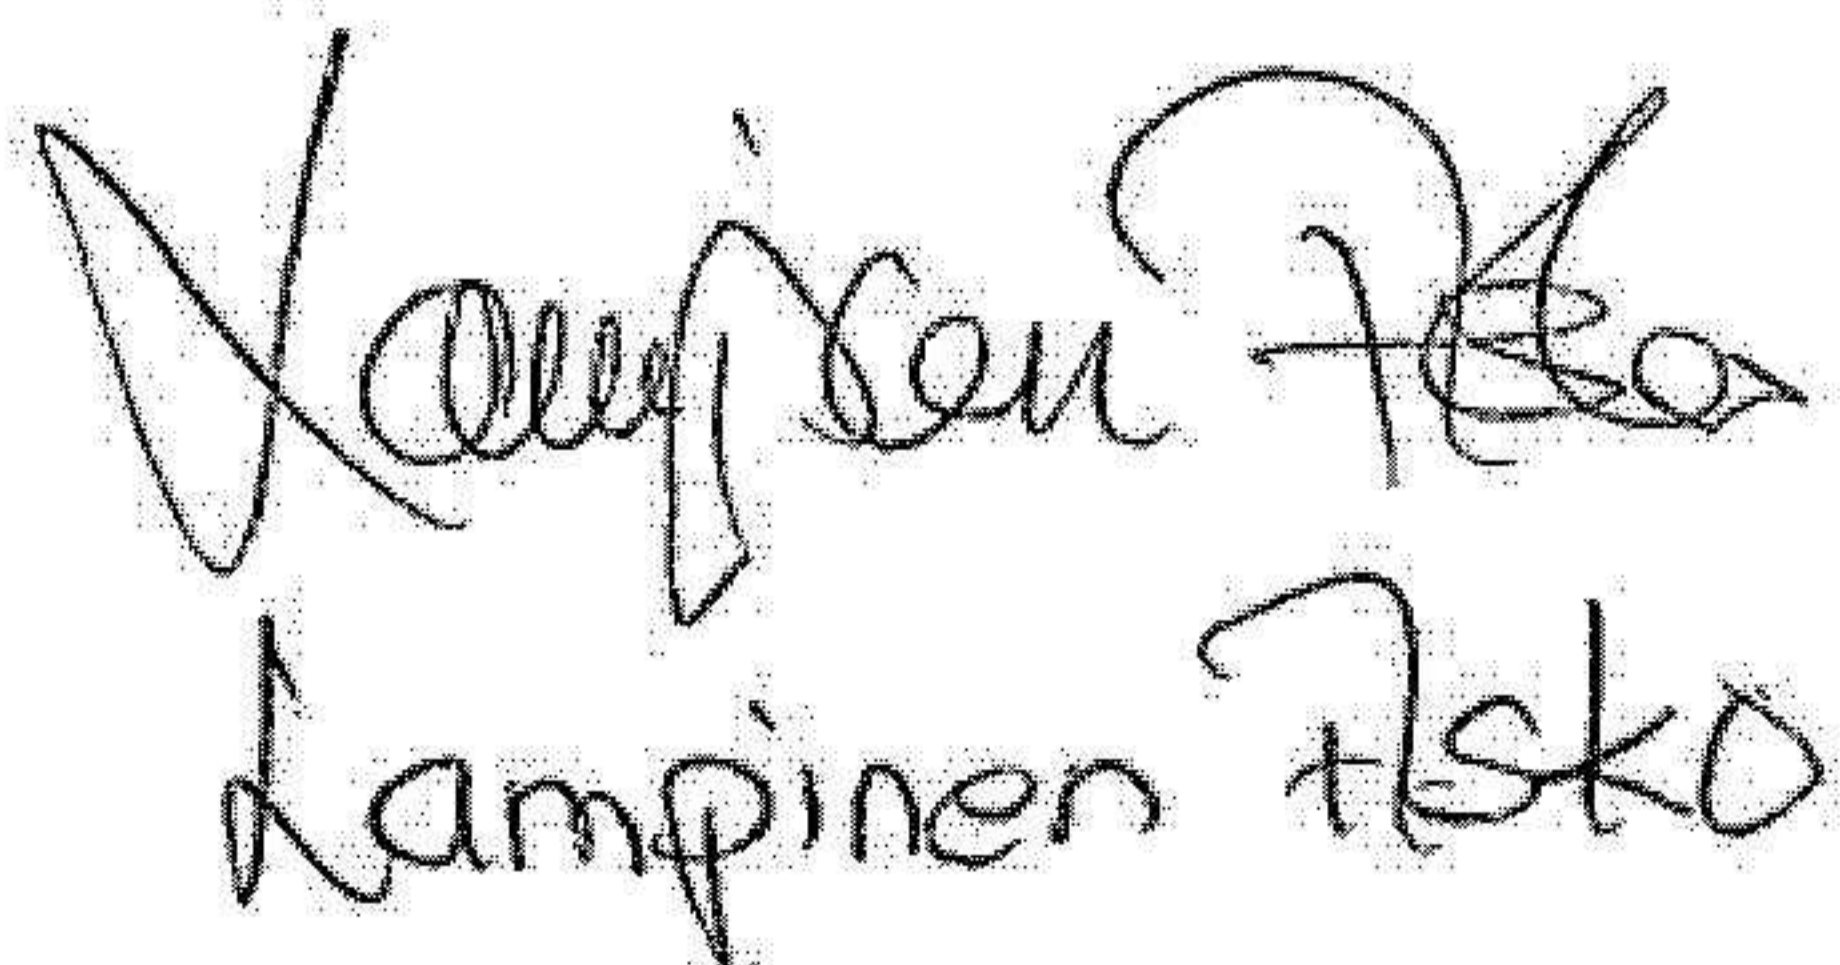 Lampinen Asko
Lampinen Asko